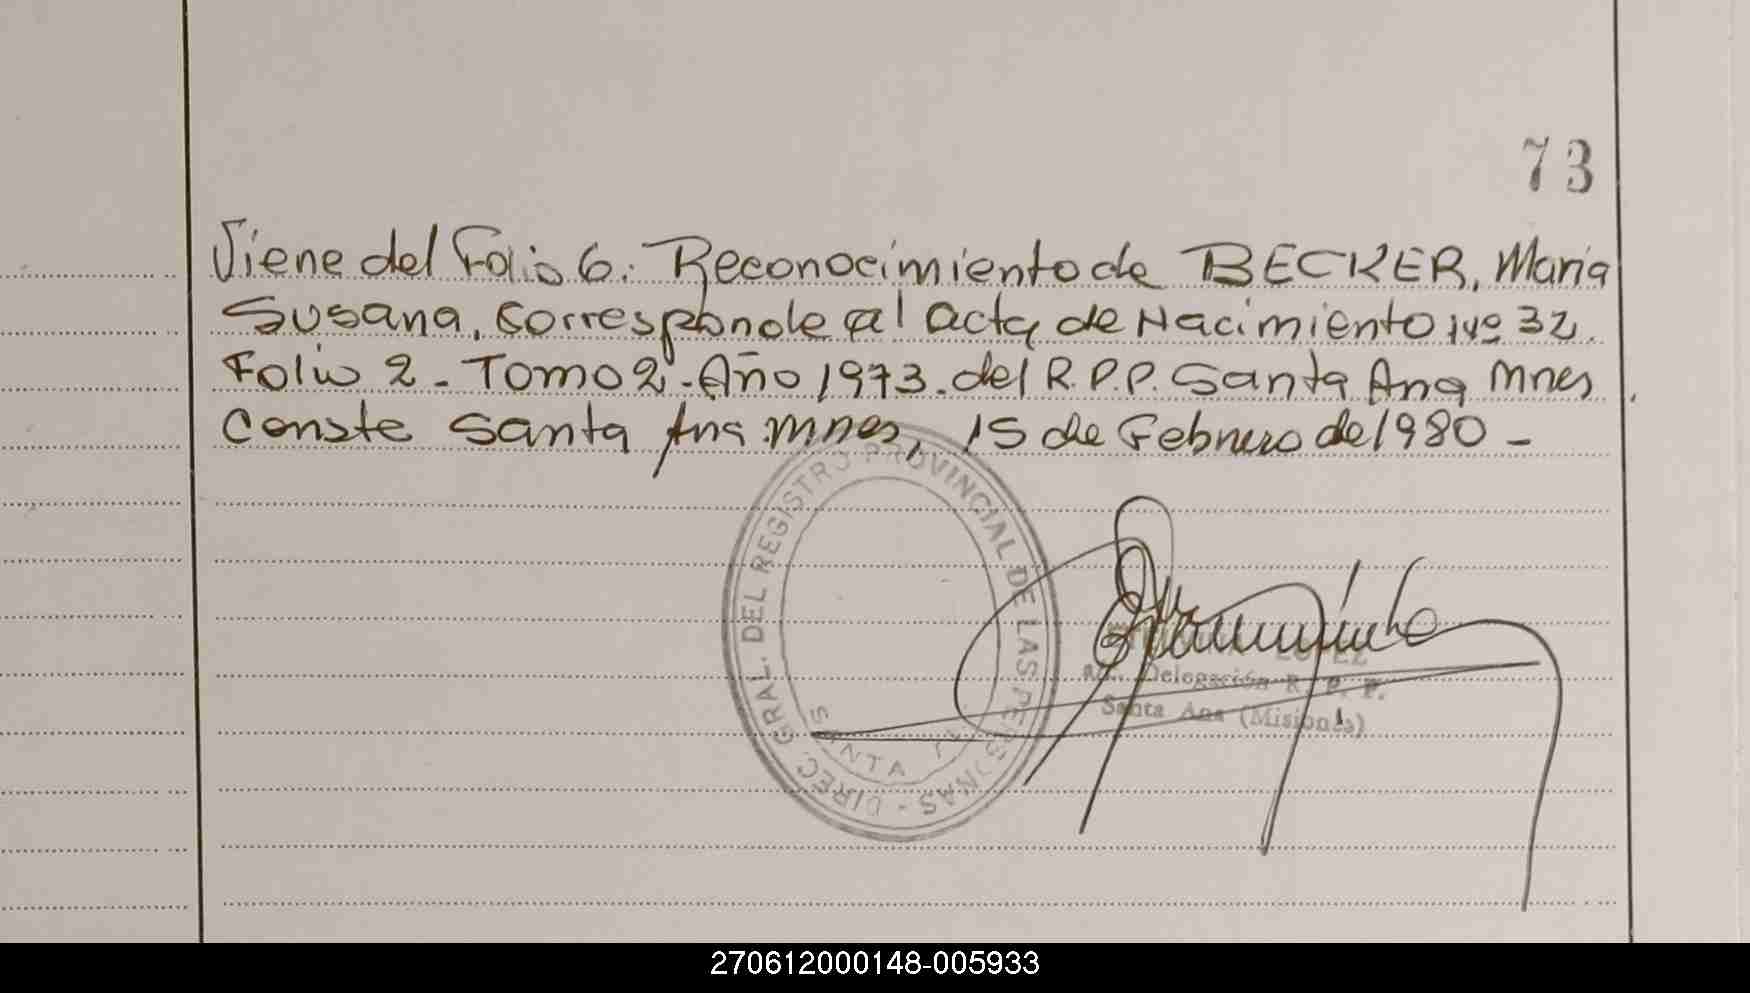 73
Viene del Folio 6: Reconocimiento de BECKER, Maria
Susana, corresponde al acta de Nacimiento Nº 32.
Folio 2 - Tomo 2 - Año 1973. del R.P.P. Santa Ana Mnes.
Conste Santa Ana Mnes, 15 de Febrero de 1980 -
DIREC. GRAL. DEL REGISTRO PROVINCIAL DE LAS PERSONAS -
SANTA
LOPEZ
Delegación R. P. P.
Santa Ana (Misiones)
270612000148-005933